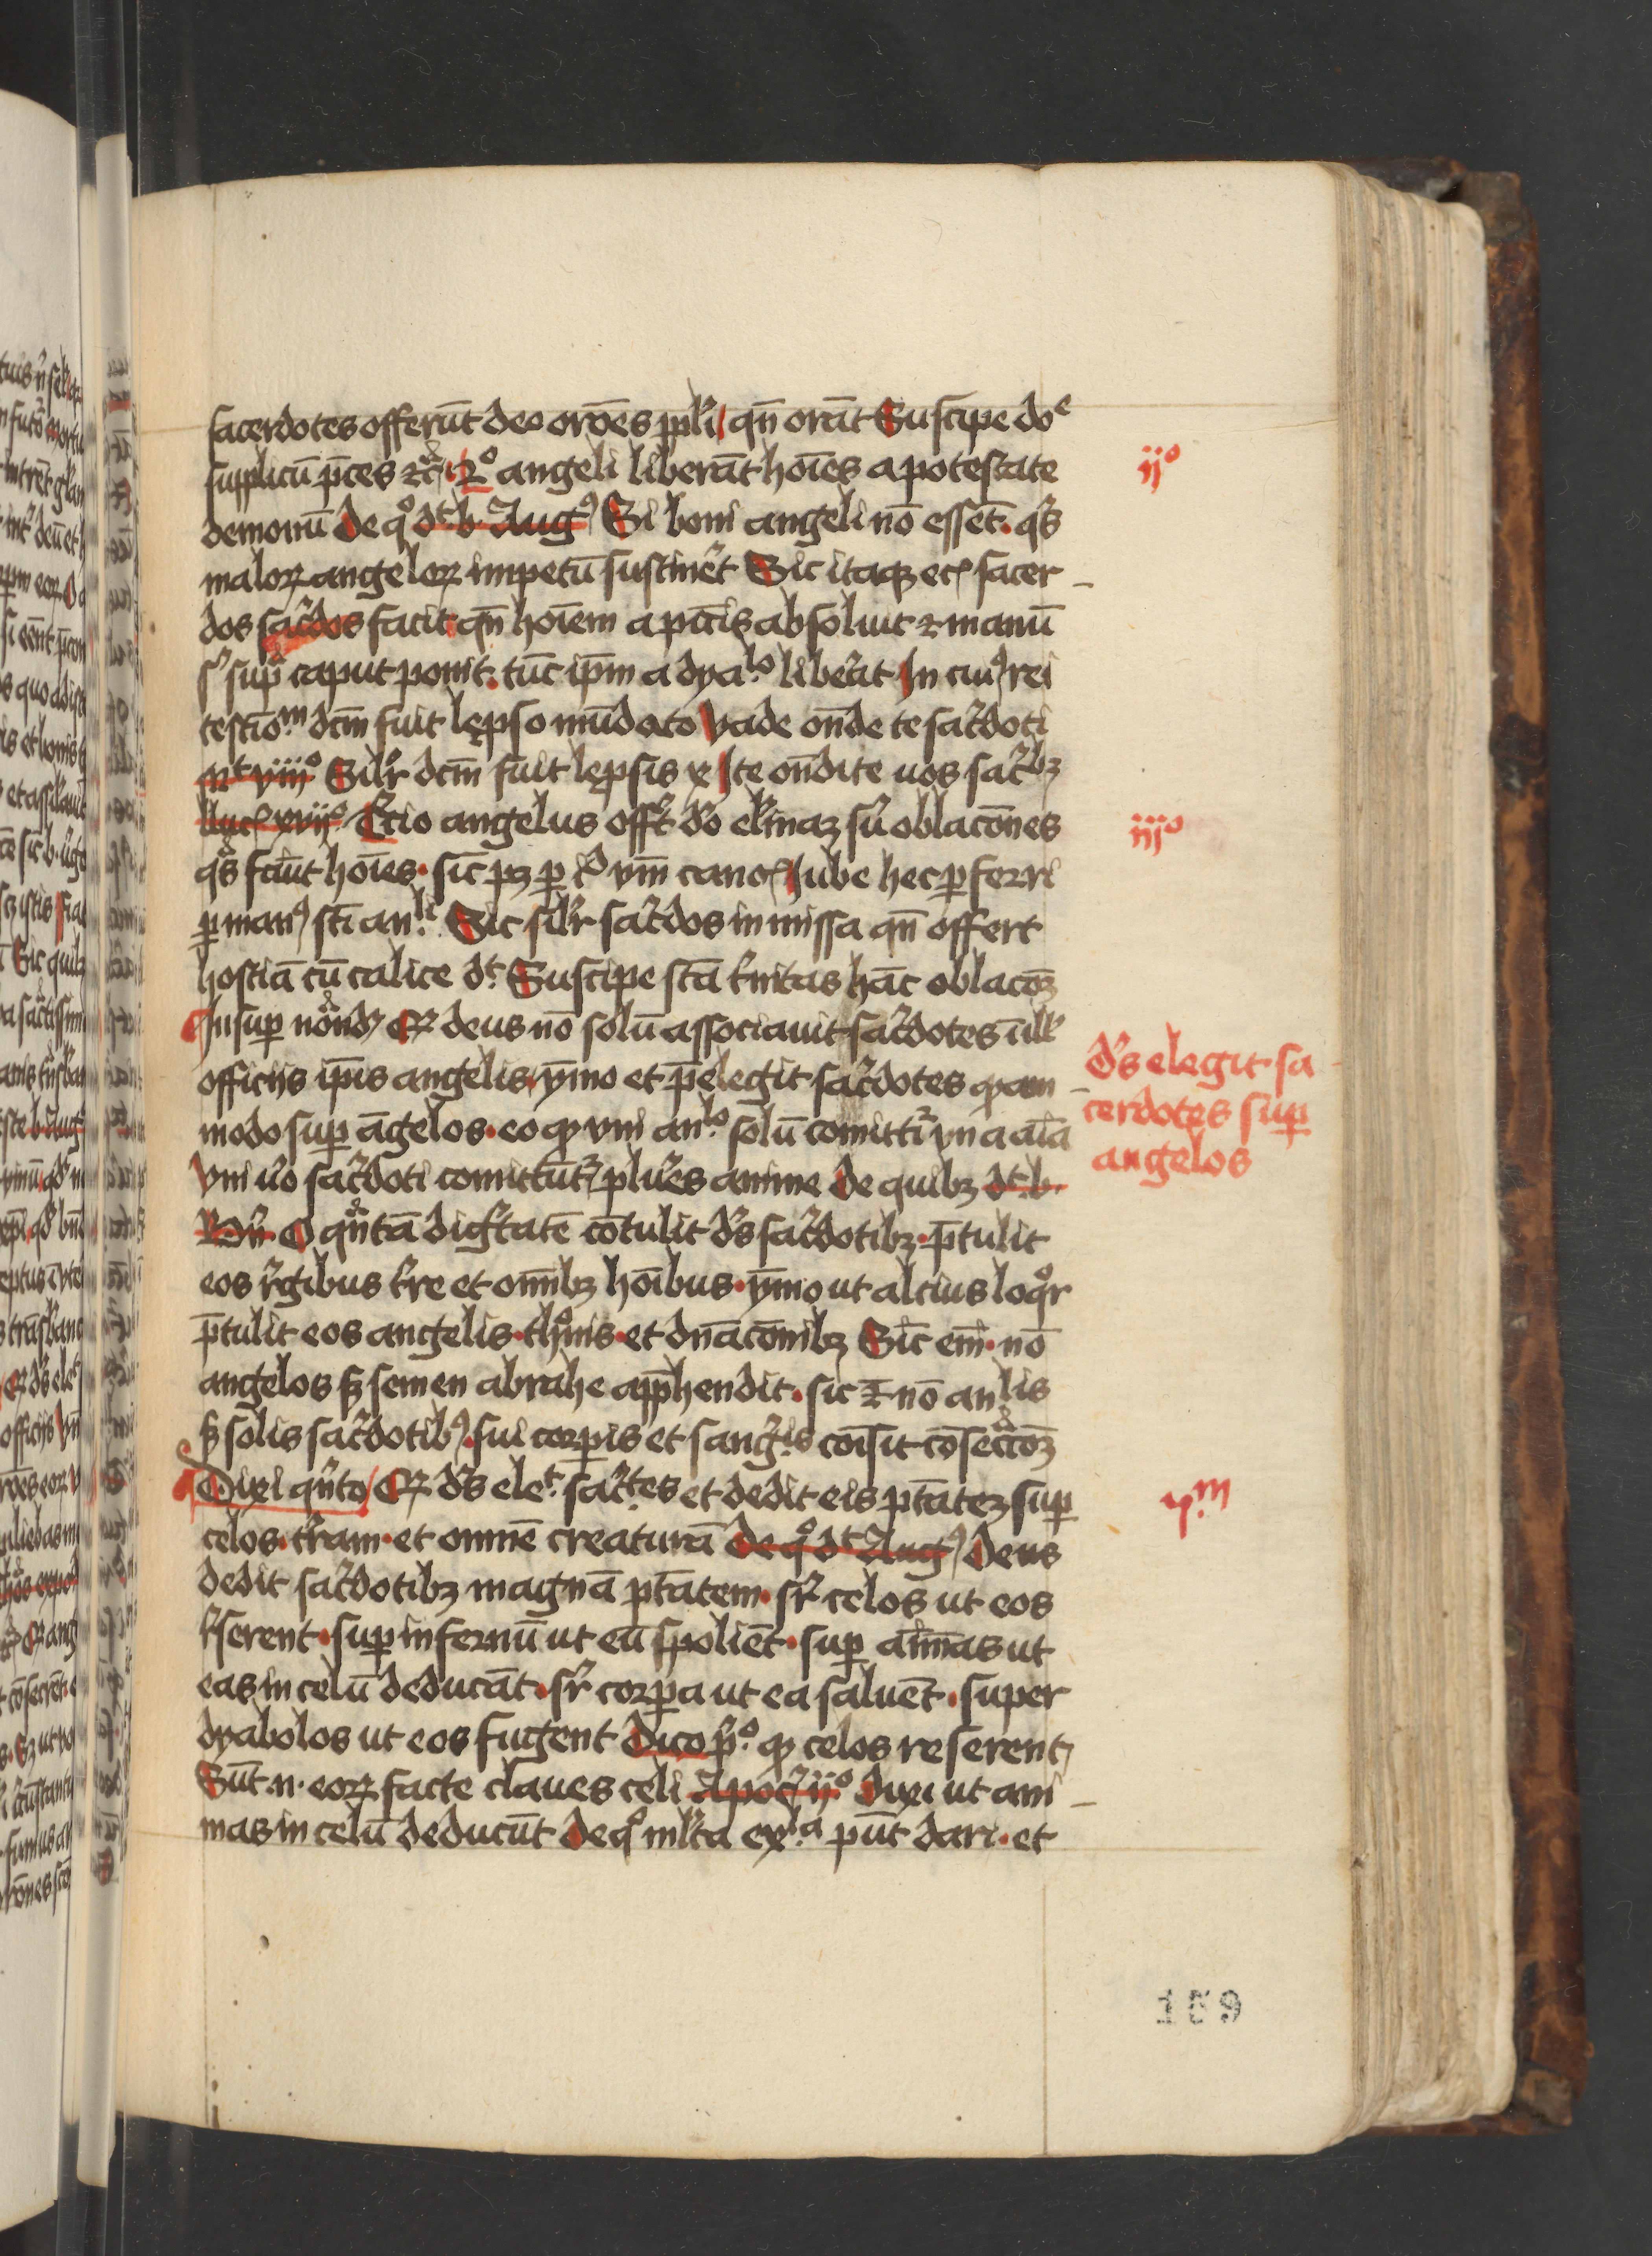 sacerdotes offerūt deo orōes ppli qn̄ orāt Suscipe doᵉ
supplicū p̄ces ꝛcͣ 2ͦ angeli liberāt hoīes a potestate
demonū De qͦ dt b Augꝰ Si boni angeli nō essēt qͥs
maloꝝ angeloꝝ impetū sustinet Sic itaqꝫ ecᷓ sacer
dos sac̓dos facit qn̄ hoīem a pctīs absoluit ꝛ manū
sͬ suꝑ caput ponit tūc ipm̄ a dyaˡᵒ liberat In cuiꝰ rei
testioᵐ dcm̄ fuit lepso mūdato Vade on̄de te sac̓doti
mᵗ viijͦ Silʳ dcm̄ fuit lepsis x Ite on̄dite uos sac̓bꝫ
luc xvijͦ Tcio angelus offʳt do elinaꝫ su oblacōnes
qͣs faciūt hoīes sic pꝫ ꝑ id vm̄ cano Iube hec ꝑferri
ꝑ manꝰ sti anˡⁱ Sic silʳ sac̓dos in missa qn̄ offert
hostiā cū calice dt Suscipe stā t̓nitas hāc oblacōꝫ
Insuꝑ notͣndꝫ Qꝫ deus nō solū associauit sac̓dotes ill̓
officijs ip̄is angelis ymo et p̄elegit sac̓dotes qͦdam
modo suꝑ āgelos eo qꝫ vni anˡᵒ solū comittiᷓ vna aīa
Vni uͦo sac̓doti comittūtᷓ plures anime De quibꝫ dt b
Bn̄ O qͣntā digͥtatē cōtulit dˢ sac̓dotibꝫ p̄tulit
eos regibus tre et omībꝫ hoībus ymo ut alcius loqͦr
p̄tulit eos angelis thͦnis et dnacōnibꝫ Sic em̄ nō
angelos sꝫ semen abrahe apphendit sic ꝛ nō anlis
sꝫ solis sac̓dotibꝰ sui corꝑis et sangͥˢ cōisit cōsecͣcōꝫ
Dixi qͥnto Qꝫ dˢ eleᵗ sac̓tes et dedit eis ptātēꝫ suꝑ
celos tram et omnē creaturā De qͦ dt Augꝰ Deus
dedit sac̓dotibꝫ magnā ptātem sʳ celos ut eos
rserent suꝑ infernū ut eū spoliēt suꝑ aīmas ut
eas in celū deducāt sʳ corꝑa ut ea saluēt super
dyabolos ut eos fugent Dico pͦ qꝫ celos reserent
Sūt n eoꝝ facte claues celi Apoc ijͦ Dixi ut ani
mas in celū deducūt De qͦ mlta exˡᵃ pn̄t dari et
ijͦ
iijͦ
dˢ elegit sa
cerdotes suꝑ
angelos
vᵐ
159